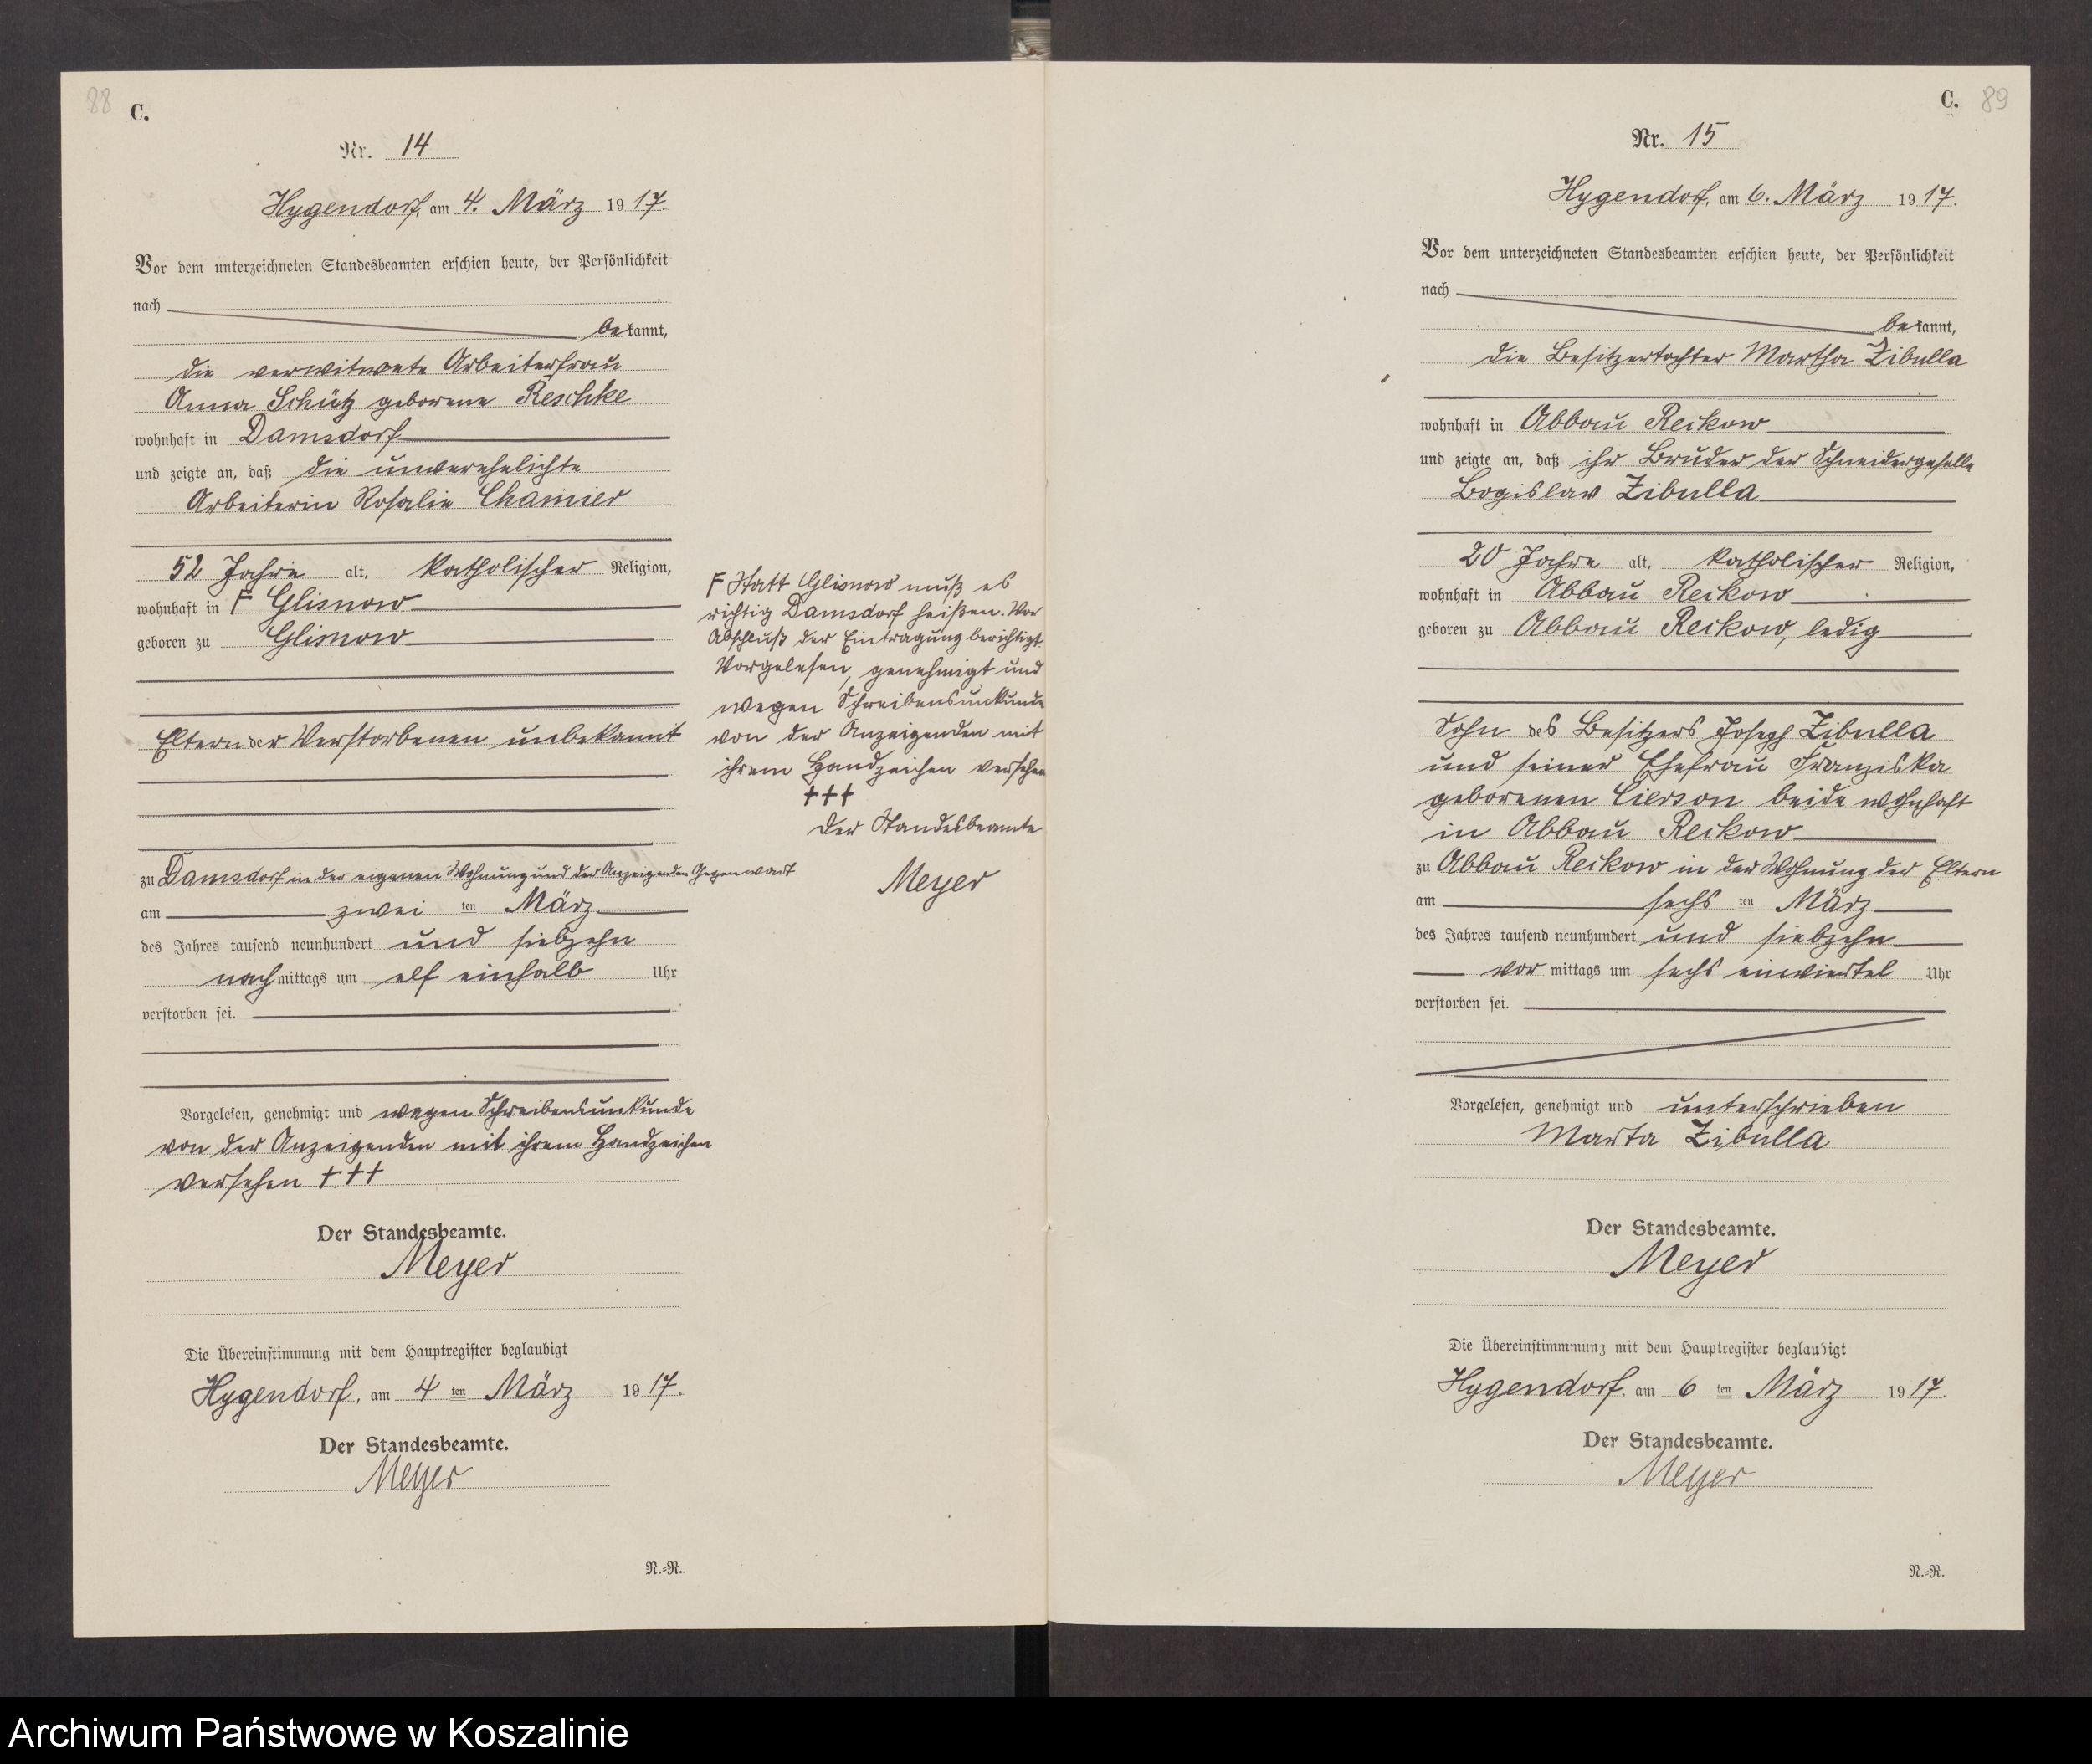 88
C.
Nr. 14
Hygendorf, am 4. März 1917.
Vor dem unterzeichneten Standesbeamten erschien heute, der Persönlichkeit
nach
bekannt,
die verwitwete Arbeiterfrau
Anna Schütz geborene Reschke
wohnhaft in Damsdorf
und zeigte an, daß die unverehelichte
Arbeiterin Rosalie Chamier
52 Jahre alt, katholischer Religion,
wohnhaft in F Glisnow
geboren zu Glisnow
Eltern der Verstorbenen unbekannt
zu Damsdorf in der eigenen Wohnung und der Anzeigenden Gegenwart
am zwei ten März
des Jahres tausend neunhundert und siebzehn
nachmittags um elf einhalb Uhr
verstorben sei.
Vorgelesen, genehmigt und wegen Schreibensunkunde
von der Anzeigenden mit ihrem Handzeichen
versehen +++
Der Standesbeamte.
Meyer
Die Übereinstimmung mit dem Hauptregister beglaubigt
Hygendorf, am 4 ten März 1917.
Der Standesbeamte.
Meyer
N.=R.
F Statt Glisnow muß es
richtig Damsdorf heißen. Vor
Abschluß der Eintragung berichtigt.
Vorgelesen, genehmigt und
wegen Schreibensunkunde
von der Anzeigenden mit
ihrem Handzeichen versehen
+++
Der Standesbeamte
Meyer
C. 89
Nr. 15
Hygendorf, am 6. März 1917.
Vor dem unterzeichneten Standesbeamten erschien heute, der Persönlichkeit
nach
bekannt,
die Besitzertochter Martha Zibulla
wohnhaft in Abbau Reckow
und zeigte an, daß ihr Bruder der Schneidergeselle
Bogislaw Zibulla
20 Jahre alt, katholischer Religion,
wohnhaft in Abbau Reckow
geboren zu Abbau Reckow, ledig
Sohn des Besitzers Joseph Zibulla
und seiner Ehefrau Franziska
geborenen Cierson beide wohnhaft
in Abbau Reckow
zu Abbau Reckow in der Wohnung der Eltern
am sechs ten März
des Jahres tausend neunhundert und siebzehn
vor mittags um sechs einviertel Uhr
verstorben sei.
Vorgelesen, genehmigt und unterschrieben
Marta Zibulla
Der Standesbeamte.
Meyer
Die Übereinstimmmung mit dem Hauptregister beglaubigt
Hygendorf, am 6 ten März 1917.
Der Standesbeamte.
Meyer
N.=R.
Archiwum Państwowe w Koszalinie